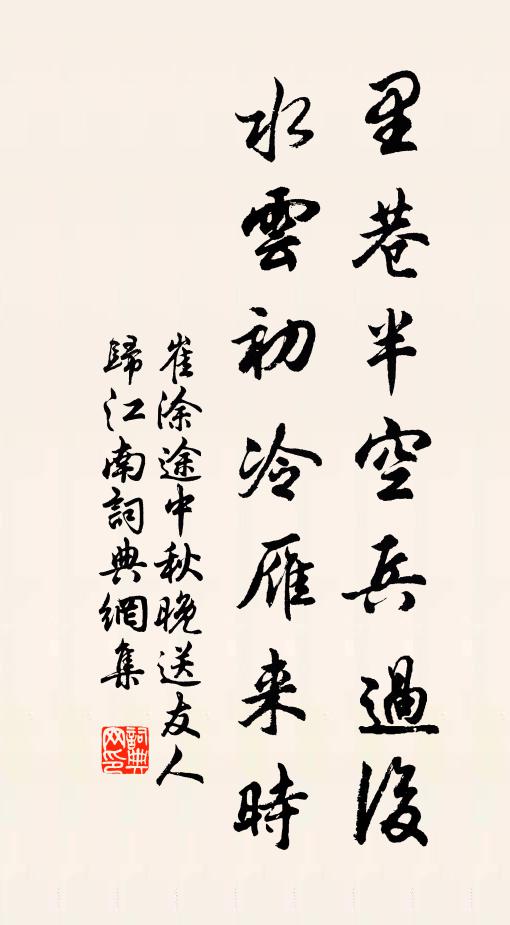 里巷半空兵過後
水雲初冷雁来時
崔涂途中秋晚送友人
歸江南詞典網集
詞典網印